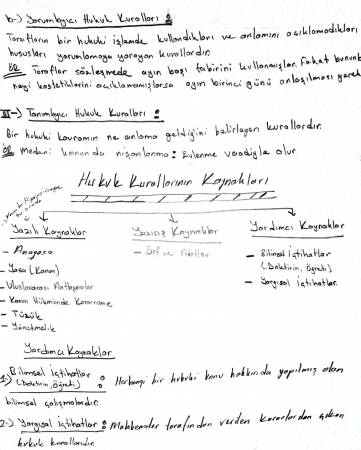 b-) Yorumlayıcı Hukuk Kuralları :
Tarafların bir hukuki işlemde kullandıkları ve anlamını açıklamadıkları
hususları yorumlamaya yarayan kurallardır.
ÖR Taraflar sözleşmede ayın başı tabirini kullanmışlar. Fakat bununla
neyi kastettiklerini açıklamamışlarsa ayın birinci günü anlaşılması gerek
III-) Tanımlayıcı Hukuk Kuralları :
Bir hukuki kavramın ne anlama geldiğini belirleyen kurallardır.
ÖR Medeni kanunda nişanlanma : Evlenme vaadiyle olur.
Hukuk Kurallarının Kaynakları
Yazılı Kaynaklar
- Anayasa
- Yasa (Kanun)
- Uluslararası Antlaşmalar
- Kanun Hükmünde Kararname
- Tüzük
- Yönetmelik
Yazısız Kaynaklar
- Örf ve Adetler
Yardımcı Kaynaklar
- Bilimsel İçtihatlar
(Doktirin, Öğreti)
- Yargısal içtihatlar.
Yardımcı Kaynaklar
1-) Bilimsel İçtihatlar :
(Doktirin, Öğreti)
Herhangi bir hukuki konu hakkında yapılmış olan
bilimsel çalışmalardır.
2-) Yargısal İçtihatlar : Mahkemeler tarafından verilen kararlardan çıkan
hukuk kurallarıdır.